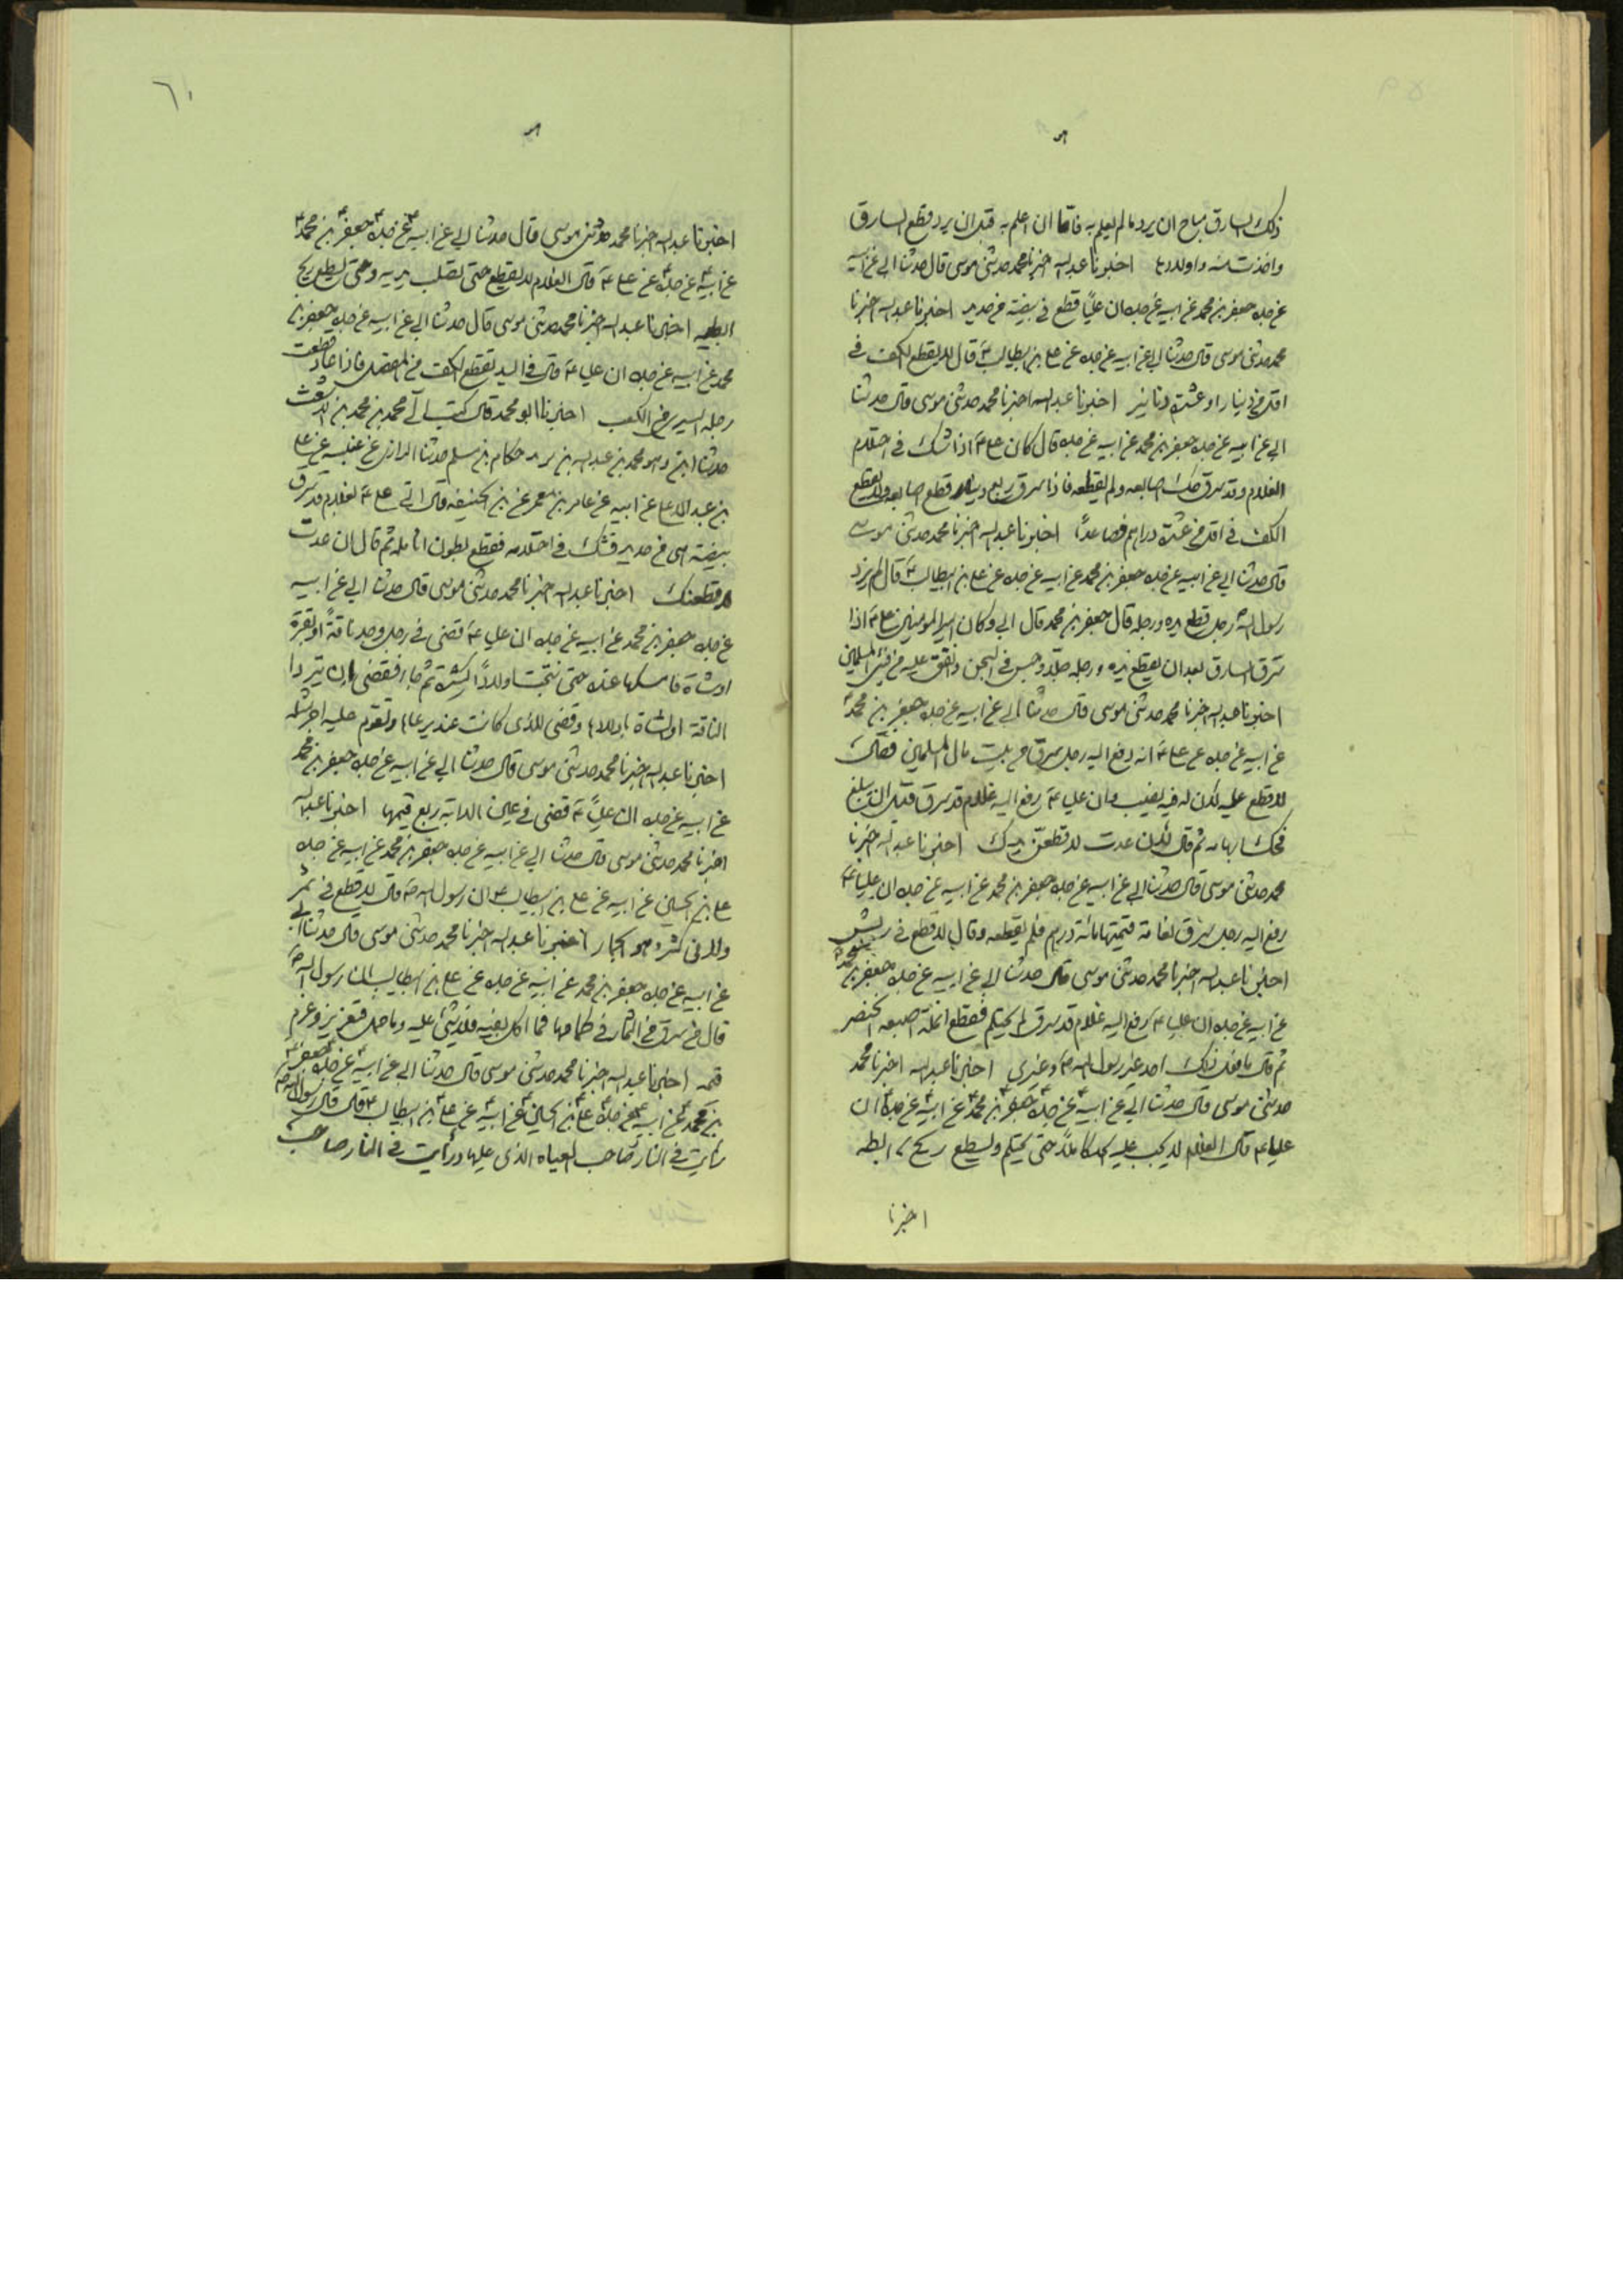 ذلك السارق مباح ان يرد ما لم يعلم به فاما ان علم به قبل ان يرد قطع السارق
واخذت منه واولادها اخبرنا عبد الله اخبرنا محمد حدثني موسى قال حدثنا ابي عن ابيه
عن جده جعفر بن محمد عن ابيه عن جده ان عليا قطع في بيضة من حديد اخبرنا عبد الله اخبرنا
محمد حدثني موسى قال حدثنا ابي عن ابيه عن جده عن علي بن ابيطالب ع قال لا يقطع الكف في
اقل من دينار او عشرة دنانير اخبرنا عبد الله اخبرنا محمد حدثني موسى قال حدثنا
ابي عن ابيه عن جده جعفر بن محمد عن ابيه عن جده قال كان علي ع اذا شك في احتلام
الغلام وقد سرق حك اصابعه ولم يقطعه فاذا سرق ربع دينار قطع اصابعه ولا يقطع
الكف في اقل من عشرة دراهم فصاعدا اخبرنا عبد الله اخبرنا محمد حدثني موسى
قال حدثنا ابي عن ابيه عن جده جعفر بن محمد عن ابيه عن جده عن علي بن ابيطالب ع قال لم يزد
رسول الله رجل قطع يده ورجله قال جعفر بن محمد قال ابي وكان امير المؤمنين علي ع اذا
سرق السارق بعد ان يقطع يده ورجله جلد وحبس في السجن وانفق عليه من فيئ المسلمين
اخبرنا عبد الله اخبرنا محمد حدثني موسى قال حدثنا ابي عن ابيه عن جده جعفر بن محمد
عن ابيه عن جده عن علي ع انه رفع اليه رجل سرق من بيت مال المسلمين فقال
لا قطع عليه لان له فيه نصيب وان عليا ع رفع اليه غلام قد سرق قبل ان يبلغ
فحك ابهامه ثم قال لئن عدت لا قطعن يدك اخبرنا عبد الله اخبرنا
محمد حدثني موسى قال حدثنا ابي عن ابيه عن جده جعفر بن محمد عن ابيه عن جده ان عليا ع
رفع اليه رجل سرق نعامة قيمتها مائة درهم فلم يقطعه وقال لا قطع في ريش
اخبرنا عبد الله اخبرنا محمد حدثني موسى قال حدثنا ابي عن ابيه عن جده جعفر بن محمد
عن ابيه عن جده ان عليا ع رفع اليه غلام قد سرق لم يحتلم فقطع انملة اصبعه الخنصر
ثم قال ما فعل ذلك احد غير رسول الله ص وغيري اخبرنا عبد الله اخبرنا محمد
حدثني موسى قال حدثنا ابي عن ابيه عن جده جعفر بن محمد عن ابيه عن جده ان
عليا ع قال الغلام لا يجب عليه الحد كاملا حتى يحتلم ويسطع ريح ابطه
اخبرنا
٦١
اخبرنا عبد الله اخبرنا محمد حدثني موسى قال حدثنا ابي عن ابيه عن جده جعفر بن محمد
عن ابيه عن جده عن علي ع قال الغلام لا يقطع حتى تصلب يديه وحتى يسطع ريح
ابطيه اخبرنا عبد الله اخبرنا محمد حدثني موسى قال حدثنا ابي عن ابيه عن جده جعفر بن
محمد عن ابيه عن جده ان عليا ع قال في اليد تقطع الكف من المفصل فاذا عاد قطعت
رجله اليسرى من الكعب اخبرنا ابو محمد قال كتب الي محمد بن محمد بن الاشعث
حدثنا محمد بن عبد الله بن حكام بن سلم حدثنا الرازي عن عنبسه عن علي
بن عبد الاعلى عن ابيه عن عامر بن معمر عن بن الحنيفه قال اتي علي ع بغلام قد سرق
بيضة من حديد فشك في احتلامه فقطع بطون انامله ثم قال ان عدت
لاقطعنك اخبرنا عبد الله اخبرنا محمد حدثني موسى قال حدثنا ابي عن ابيه
عن جده جعفر بن محمد عن ابيه عن جده ان عليا ع قضى في رجل وجد ناقة او بقرة
او شاة فامسكها عنده حتى نتجت اولادا كثيرة ثم جاء فقضى ان يرد
الناقة او الشاة باولادها وقضى للذي كانت عنده يرعاها وتقوم عليه اجر مثله
اخبرنا عبد الله اخبرنا محمد حدثني موسى قال حدثنا ابي عن ابيه عن جده جعفر بن محمد
عن ابيه عن جده ان عليا ع قضى في عين الدابة ربع قيمتها اخبرنا عبد الله
اخبرنا محمد حدثني موسى قال حدثنا ابي عن ابيه عن جده جعفر بن محمد عن ابيه عن جده
علي بن الحسين عن ابيه عن علي بن ابيطالب ع ان رسول الله ص قال لا قطع في ثمر
ولا في كثر وهو الجمار اخبرنا عبد الله اخبرنا محمد حدثني موسى قال حدثنا ابي
عن ابيه عن جده جعفر بن محمد عن ابيه عن جده عن علي بن ابيطالب ان رسول الله ص
قال من سرق من الثمار في كمامها فما اكل بفيه فلا شئ عليه وما حمل فتعزير وغرم
قيمه اخبرنا عبد الله اخبرنا محمد حدثني موسى قال حدثنا ابي عن ابيه عن جده جعفر
بن محمد عن ابيه عن جده علي بن الحسين عن ابيه عن علي بن ابيطالب ع قال قال رسول الله ص
رايت في النار صاحب العباه الذي غلها ورأيت في النار صاحب